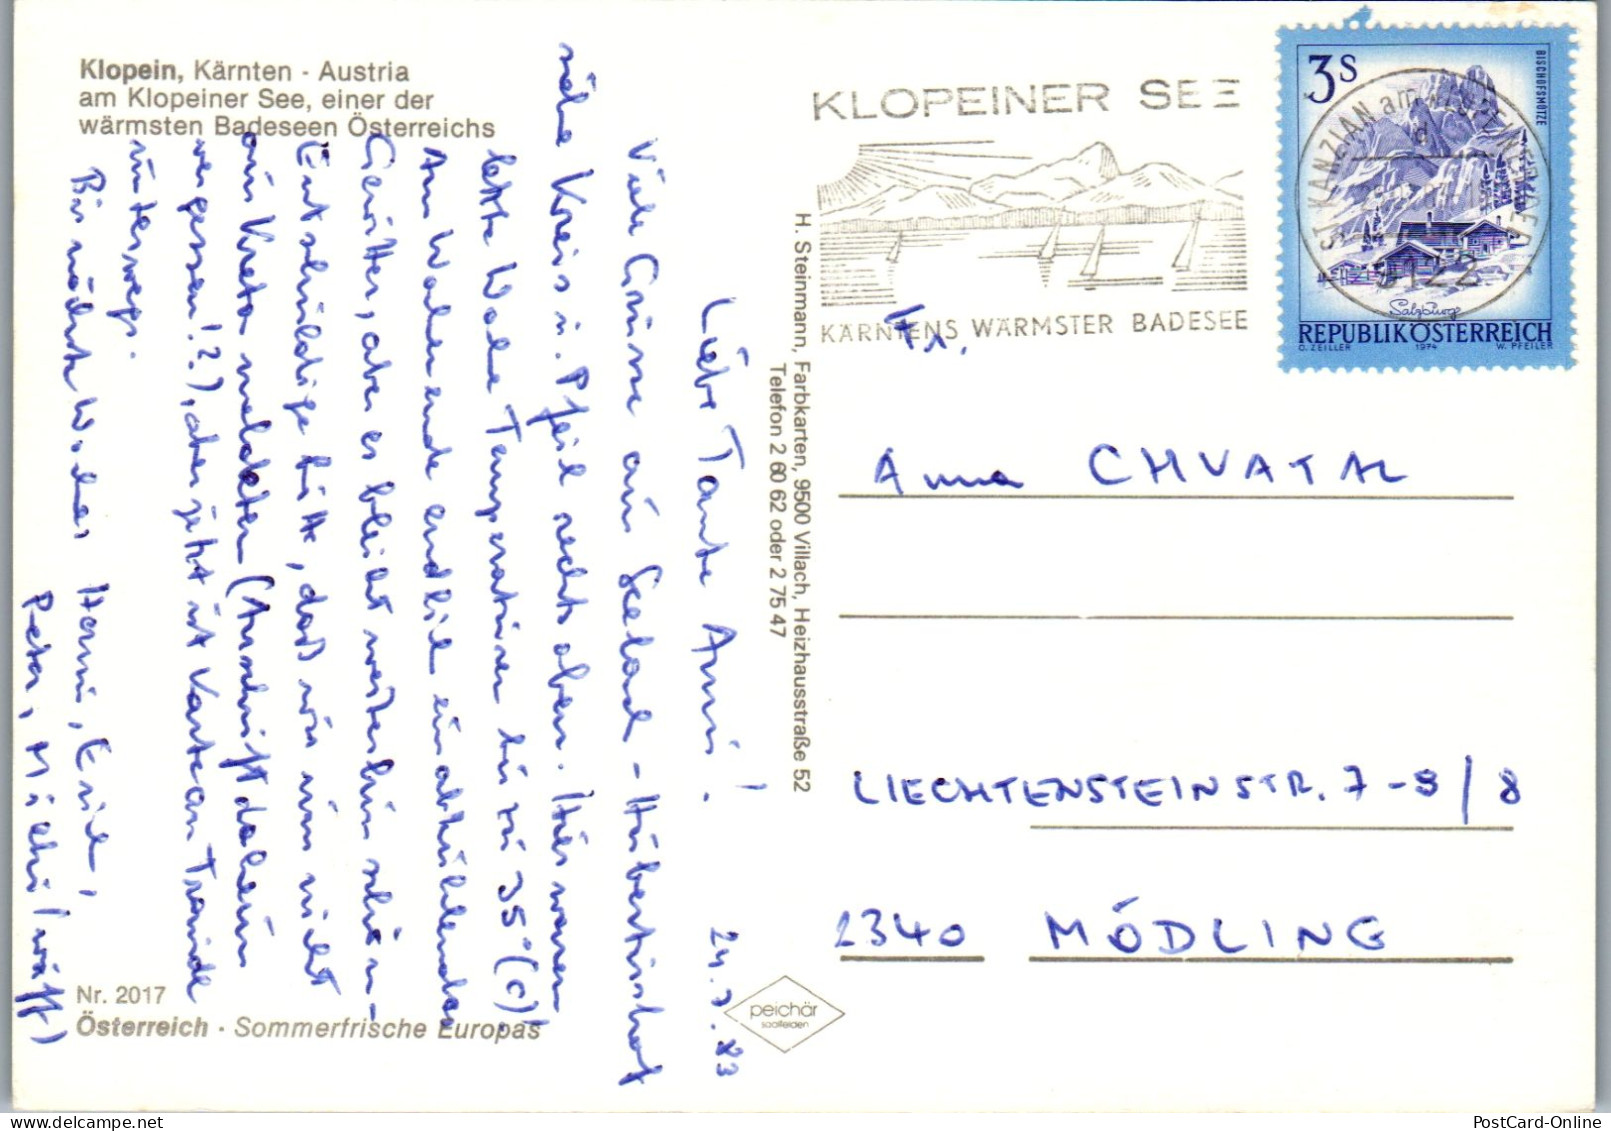 Klopein, Kärnten - Austria
am Klopeiner See, einer der
wärmsten Badeseen Österreichs
KLOPEINER SEE
KÄRNTENS WÄRMSTER BADESEE
3S
BISCHOFSMÜTZE
Salzburg
REPUBLIK ÖSTERREICH
O. ZEILLER 1974 W. PFEILER
ST. KANZIAN am KLOPEINERSEE
d
9122
24.7.83
Liebe Tante Anni!
Viele Grüsse aus Seelach - Hubertushof
siehe Kreis u. Pfeil rechts oben. Hier waren
letzte Woche Temperaturen bis zu 35° (C)!
Am Wochenende endlich ein abkühlendes
Gewitter, aber es bleibt weiterhin schön.
Entschuldige bitte, daß wir uns nicht
aus Kreta meldeten (Anschrift daheim
vergessen!?), aber jetzt ist Karte an Traude
unterwegs.
Bis nächste Woche
Hanni, Erich,
Peter, Michi (wäff)
H. Steinmann, Farbkarten, 9500 Villach, Heizhausstraße 52
Telefon 2 60 62 oder 2 75 47
Fr.
Anna CHVATAL
LIECHTENSTEINSTR. 7-9/8
2340 MÖDLING
Nr. 2017
Österreich · Sommerfrische Europas
peichär
saalfelden
PostCard-Online